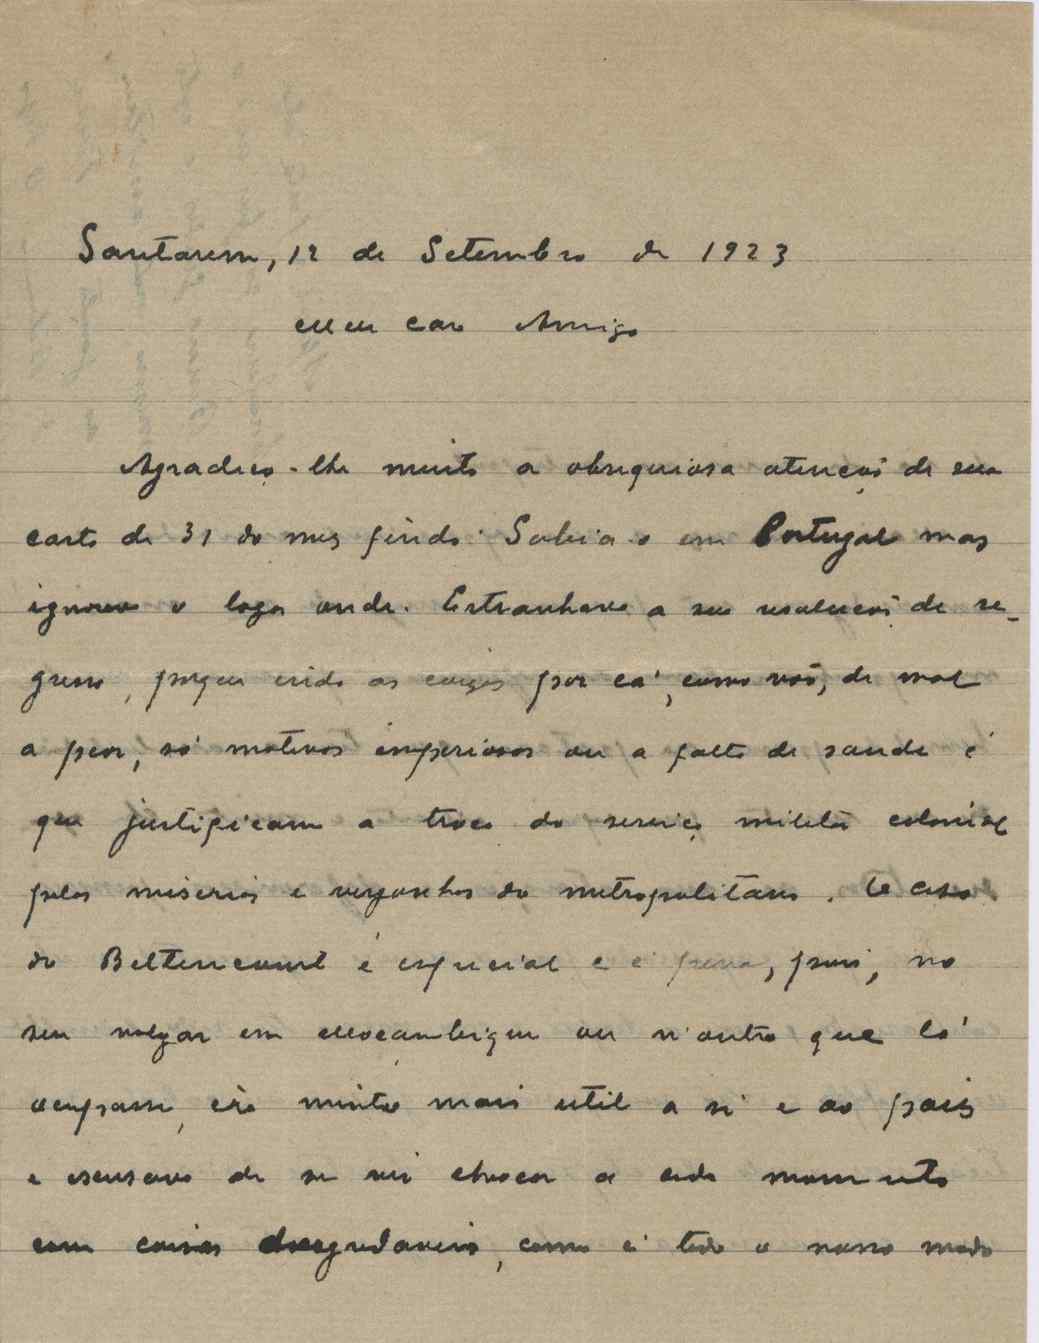 Santarem, 12 de Setembro de 1923
Meu caro Amigo
Agradeço-lhe muito a obsequiosa atenção de sua
carta de 31 do mes findo. Sabia-o em Portugal mas
ignorava o logar onde. Estranhava a sua resolução de re-
gresso, porque indo as coisas por cá, como vão, de mal
a peor, só motivos imperiosos ou a falta de saude é
que justificam a troca do serviço militar colonial
pelas miserias e vergonhas do metropolitano. O caso
do Bettencourt é especial e é pena, pois, no
seu lugar em Moçambique ou n'outro que lá
ocupasse, era muito mais util a si e ao paiz
e escusava de se vir chocar a cada momento
com coisas desagradaveis, como é todo o nosso modo